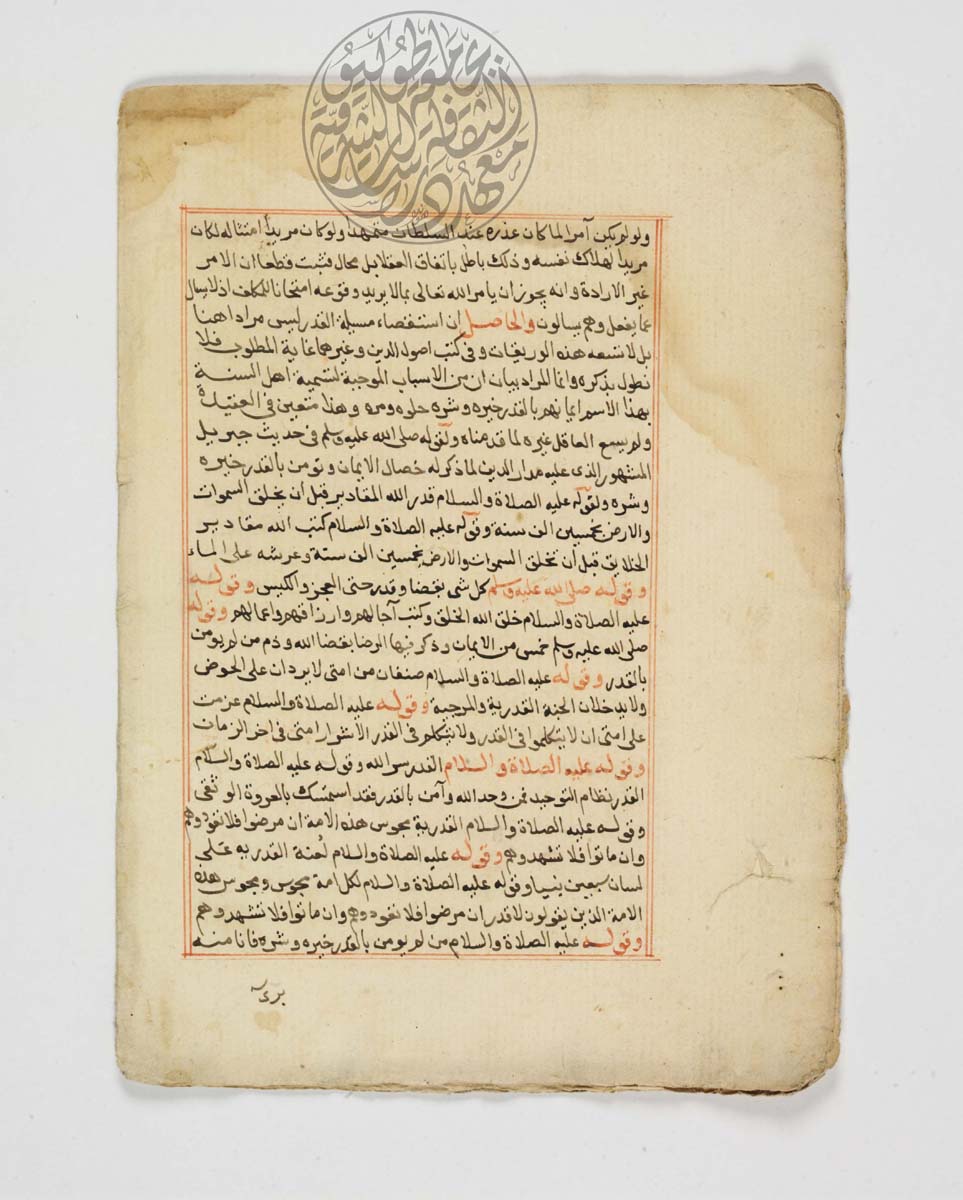 معهد دراسات الثقافة الشرقية
جامعة طوكيو
ولو لم يكن آمرا لما كان عذره عند السلطان متمهدا ولو كان مريدا امتثاله لكان
مريدا لهلاك نفسه وذلك باطل باتفاق العقلا بل محال فثبت قطعا ان الامر
غير الارادة وانه يجوز ان يامر الله تعالى بما لا يريد وقوعه امتحانا للمكلف اذ لا يسال
عما يفعل وهم يسالون والحاصل ان استقصاء مسيلة القدر ليس مرادا هنا
بل لا تسعه هذه الوريقات وفي كتب اصول الدين وغيرهما غاية المطلوب فلا
نطول بذكره وانما المراد بيان ان من الاسباب الموجبة لتسمية اهل السنة
بهذا الاسم ايمانهم بالقدر خيره وشره حلوه ومره وهذا متعين في العقيدة
ولم يسع العاقل غيره لما قدمناه ولقوله صلى الله عليه وسلم في حديث جبريل
المشهور الذى عليه مدار الدين لما ذكر له خصال الايمان وتومن بالقدر خيره
وشره ولقوله عليه الصلاة والسلام قدر الله المقادير قبل أن يخلق السموات
والارض بخمسين الف سنة وقوله عليه الصلاة والسلام كتب الله مقادير
الخلايق قبل أن تخلق السموات والارض بخمسين الف سنة وعرشه على الماء
وقوله صلى الله عليه وسلم كل شى بقضا وقدر حتى العجز والكيس وقوله
عليه الصلاة والسلام خلق الله الخلق وكتب آجالهم وارزاقهم واعمالهم وقوله
صلى الله عليه وسلم خمس من الايمان وذكر فيها الرضا بقضا الله وذم من لم يومن
بالقدر وقوله عليه الصلاة والسلام صنفان من امتى لا يردان على الحوض
ولا يدخلان الجنة القدرية والمرجية وقوله عليه الصلاة والسلام عزمت
على امتى ان لا يتكلموا فى القدر ولا يتكلم فى القدر الا شرار امتى فى اخر الزمان
وقوله عليه الصلاة والسلام القدر سر الله وقوله عليه الصلاة والسلام
القدر نظام التوحيد فمن وحد الله وآمن بالقدر فقد استمسك بالعروة الوثقى
وقوله عليه الصلاة والسلام القدرية مجوس هذه الامة ان مرضوا فلا تعودوهم
وان ماتوا فلا تشهدوهم وقوله عليه الصلاة والسلام لعنة القدريه على
لسان سبعين نبيا وقوله عليه الصلاة والسلام لكل امة مجوس ومجوس هذه
الامة الذين يقولون لا قدر ان مرضوا فلا تعودوهم وان ماتوا فلا تشهدوهم
وقوله عليه الصلاة والسلام من لم يومن بالقدر خيره وشره فانا منه
برىء